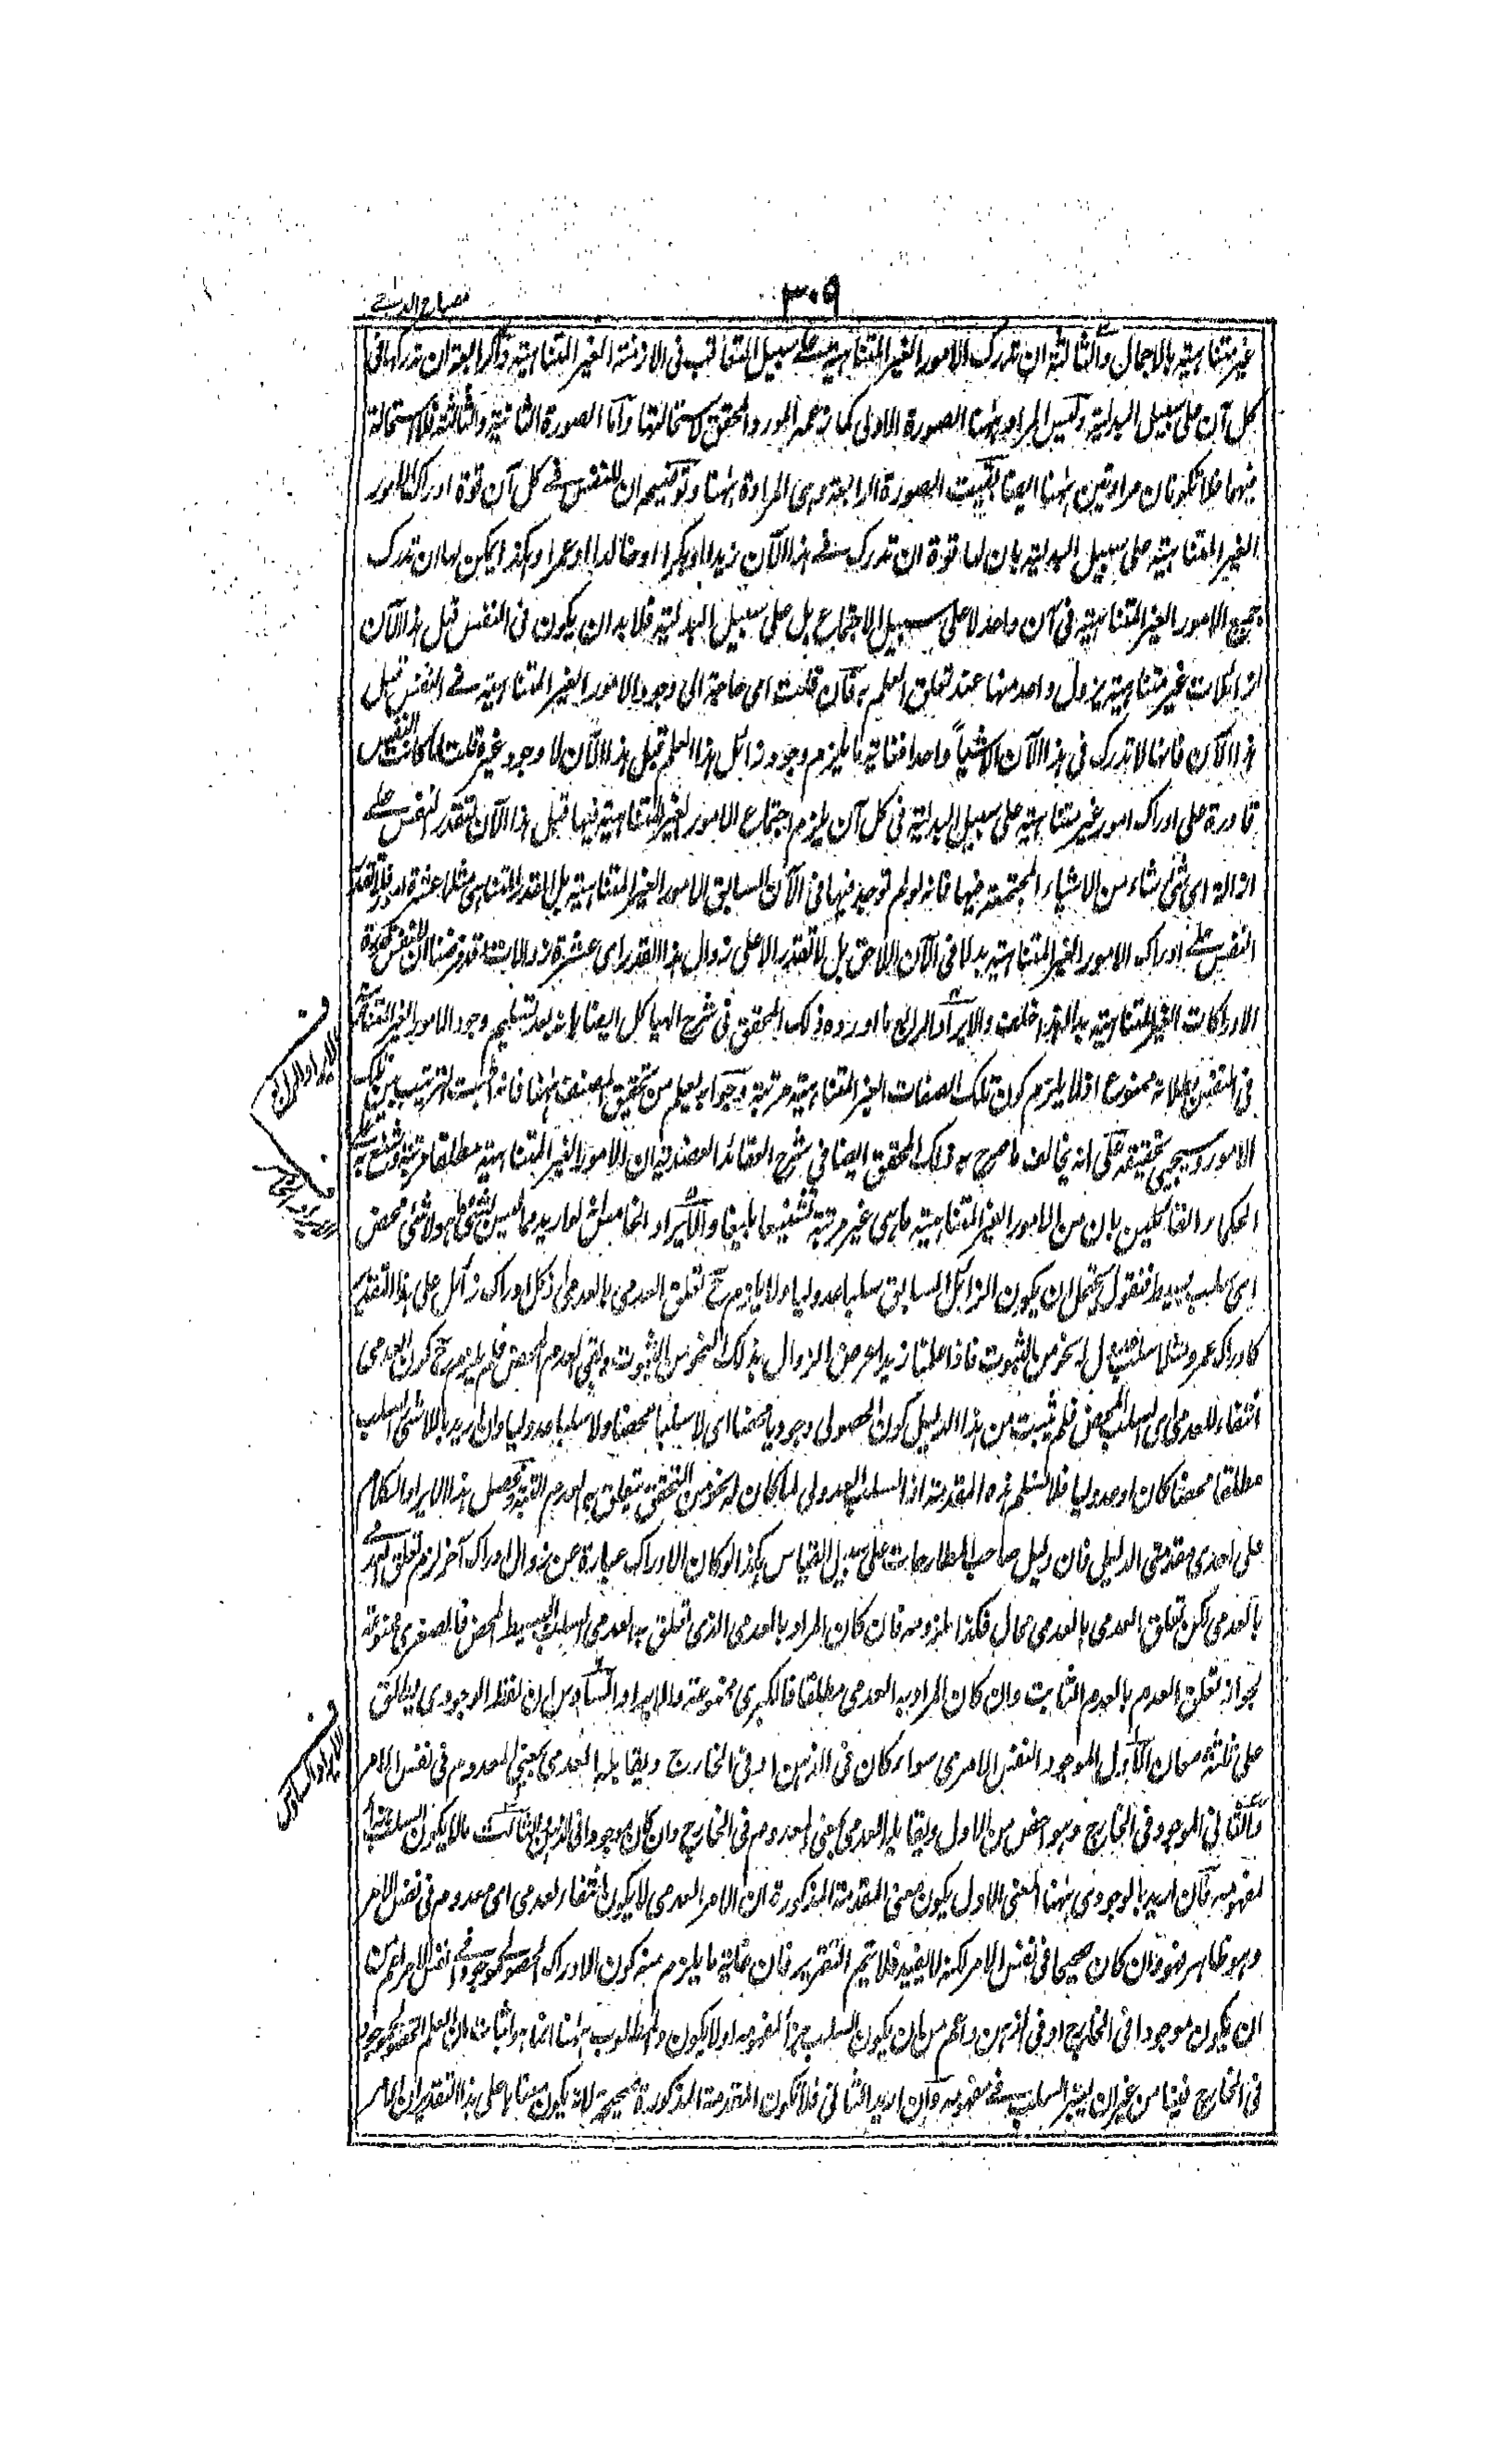 ٣٠٩
مصباح الدجى
غير متناهية بالاجمال والثالثة ان تدرك الامور الغير المتناهية على سبيل التعاقب فى الازمنة الغير المتناهية والرابعة ان تدركها فى
كل آن على سبيل البدلية وليس المراد ههنا الصورة الاولى كما زعمه المورد المحقق لاستحالتها وأما الصورة الثانية والثالثة فلا استحالة
فيهما فلا تكونان مرادتين ههنا ايضا فبقيت الصورة الرابعة وهى المرادة ههنا وتوضيحه ان للنفس فى كل آن قوة ادراك الامور
الغير المتناهية على سبيل البدلية بان لها قوة ان تدرك فى هذا الآن زيدا او بكرا او خالدا او عمرا وهكذا يمكن لها ان تدرك
جميع الامور الغير المتناهية فى آن واحد لا على سبيل الاجتماع بل على سبيل البدلية فلا بد ان يكون فى النفس قبل هذا الآن
ازائلات غير متناهية يزول واحد منها عند تعلق العلم به فان قلت اى حاجة الى وجود الامور الغير المتناهية فى النفس قبل
هذا الآن فانها لا تدرك فى هذا الآن الا شيأ واحدا فغاية ما يلزم وجود زائل هذا العلم قبل هذا الآن لا وجود غيره قلت لما كانت النفس
قادرة على ادراك امور غير متناهية على سبيل البدلية فى كل آن يلزم اجتماع الامور الغير المتناهية فيها قبل هذا الآن لتقدر النفس على
ازالة اى شئ شاء من الاشياء المجتمعة فيها فانه لو لم توجد فيها فى الآن السابق الامور الغير المتناهية بل القدر المتناهى مثلا عشرة امور لا تقدر
النفس على ادراك الامور الغير المتناهية بدلا فى الآن اللاحق بل لا تقدر الا على زوال هذا القدر اى عشرة زوالات وقد فرضنا ان للنفس قوة
الادراكات الغير المتناهية بدلا هذا خلف والايراد الرابع ما اورده ذلك المحقق فى شرح الهياكل ايضا بانه بعد تسليم وجود الامور الغير المتناهية
فى النفس بطلانه ممنوع اذ لا يلزم كون تلك الصفات الغير المتناهية مرتبة وجوابه يعلم من تحقيق المصنف ههنا فانه اثبت الترتيب بين تلك
الامور وسيجئ تحقيقه على انه يخالف ما صرح به ذلك المحقق ايضا فى شرح العقائد العضدية ان الامور الغير المتناهية مطلقا مرتبة وشنع به على
الحكماء القائلين بان من الامور الغير المتناهية ما هى غير مرتبة تشنيعا بليغا والايراد الخامس انه لو اريد مما ليس بشئ ما هو لا شئ محض
اى سلب بسيط فنقول يحتمل ان يكون الزائل السابق سلبا عدوليا ولا يلزم ح تعلق العدمى بالعدمى اذ كل ادراك زائل على هذا التقدير
كادراك عمرو مثلا سلب عدولى له نحو من الثبوت فاذا علمنا زيدا عرض الزوال بذلك النحو من الثبوت وبقى العدم المحض فلم يلزم ح كون العدمى
انتفاء للعدمى اى السلب المحض فلم يثبت من هذا الدليل كون الحصولى وجوديا محضا اى لا سلبا محضا ولا سلبا عدوليا وان اريد باللاشئ السلب
مطلقا محضا كان او عدوليا فلا نسلم هذه المقدمة اذ السلب العدولى لما كان له نحو من التحقق يتعلق به العدم البتة وحاصل هذا الايراد الكلام
على احدى مقدمتى الدليل فان دليل صاحب المطارحات على سبيل القياس هكذا لو كان الادراك عبارة عن زوال ادراك آخر لزم تعلق العدمى
بالعدمى لكن تعلق العدمى بالعدمى محال فكذا ملزومه فان كان المراد بالعدمى الذى تعلق به العدمى السلب البسيط المحض فالصغرى ممنوعة
لجواز تعلق العدم بالعدم الثابت وان كان المراد به العدمى مطلقا فالكبرى ممنوعة والايراد السادس ان لفظ الوجودى يطلق
على ثلثة معان الاول الموجود النفس الامرى سواء كان فى الذهن او فى الخارج ويقابله العدمى بمعنى المعدوم فى نفس الامر
والثانى الموجود فى الخارج وهو اخص من الاول ويقابله العدمى بمعنى المعدوم فى الخارج وان كان موجودا فى الذهن والثالث ما لا يكون السلب جزأ
لمفهومه فان اريد بالوجودى ههنا المعنى الاول يكون معنى المقدمة المذكورة ان الامر العدمى لا يكون انتفاء لعدمى اى معدوم فى نفس الامر
وهو ظاهر فهو وان كان صحيحا فى نفس الامر لكنه لا يفيد فلا يتم التقرير فان غاية ما يلزم منه كون الادراك الحصولى موجودا فى نفس الامر اعم من
ان يكون موجودا فى الخارج او فى الذهن واعم من ان يكون السلب جزأ لمفهومه او لا يكون والمطلوب ههنا انما هو اثبات ان العلم الحصولى موجود
فى الخارج فينا من غير ان يعتبر السلب فى مفهومه وان اريد الثانى فلا تكون المقدمة المذكورة صحيحة لانه يكون معناها على هذا التقدير ان الامر
الايراد الرابع
الايراد الخامس
الايراد السادس